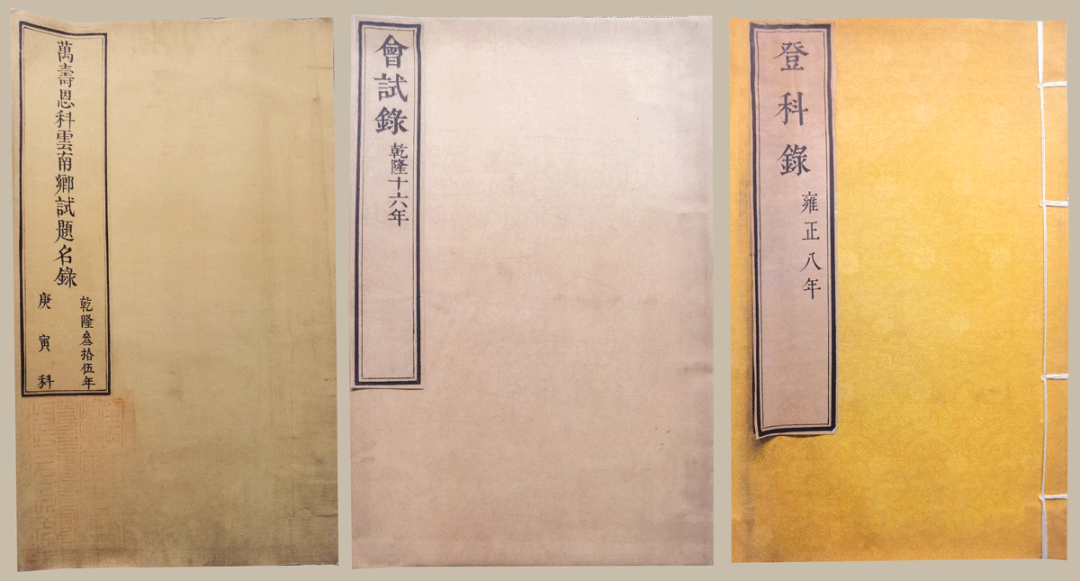 萬壽恩科雲南鄉試題名錄
乾隆叁拾伍年
庚寅科
會試錄
乾隆十六年
登科錄
雍正八年